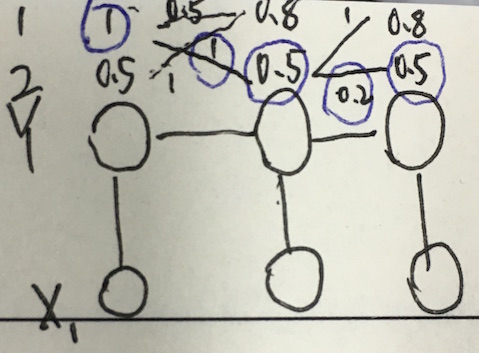 1 1 0.5 0.8 1 0.8
2 0.5 1 1 0.5 0.2 0.5
Y
X1